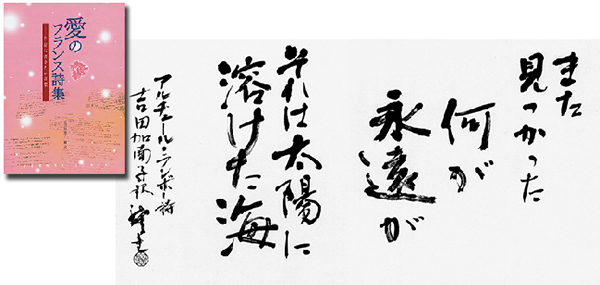 愛の
フランス詩集
また
見つかった
何が
永遠が
それは太陽に
溶けた海
アルチュール・ランボー詩
吉田加南子訳